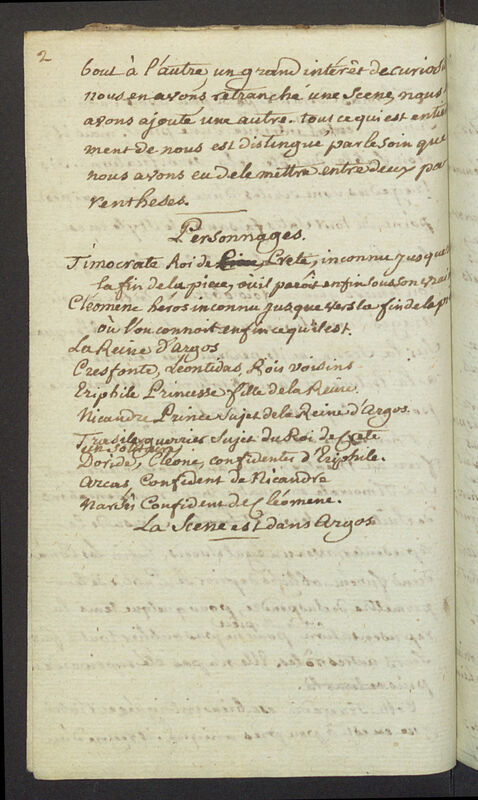 2
bout à l'autre, un grand intérêt de curios
nous en avons retranché une Scene, nous
avons ajouté une autre. tout ce qui est entié
ment de nous est distingué par le soin que
nous avons eu de le mettre entre deux pa
rentheses.
Personnages.
Timocrate Roi de Crete, inconnu jusque
la fin de la piece, ou il paroit enfin sous son vrai
Cléomene héros inconnu jusque vers la fin de la
où l'on connoit enfin ce qu'il est.
La Reine d'Argos
Cresfonte, Léontidas, Rois voisins
Eriphile Princesse fille de la Reine
Nicandre Prince Sujet de la Reine d'Argos
Trasile guerrier Sujet du Roi de Crete
un Soldat
Doride, Cléone, confidentes d'Eriphile.
Arcas, Confident de Nicandre
Confident de Cléomene.
La Scene est dans Argos